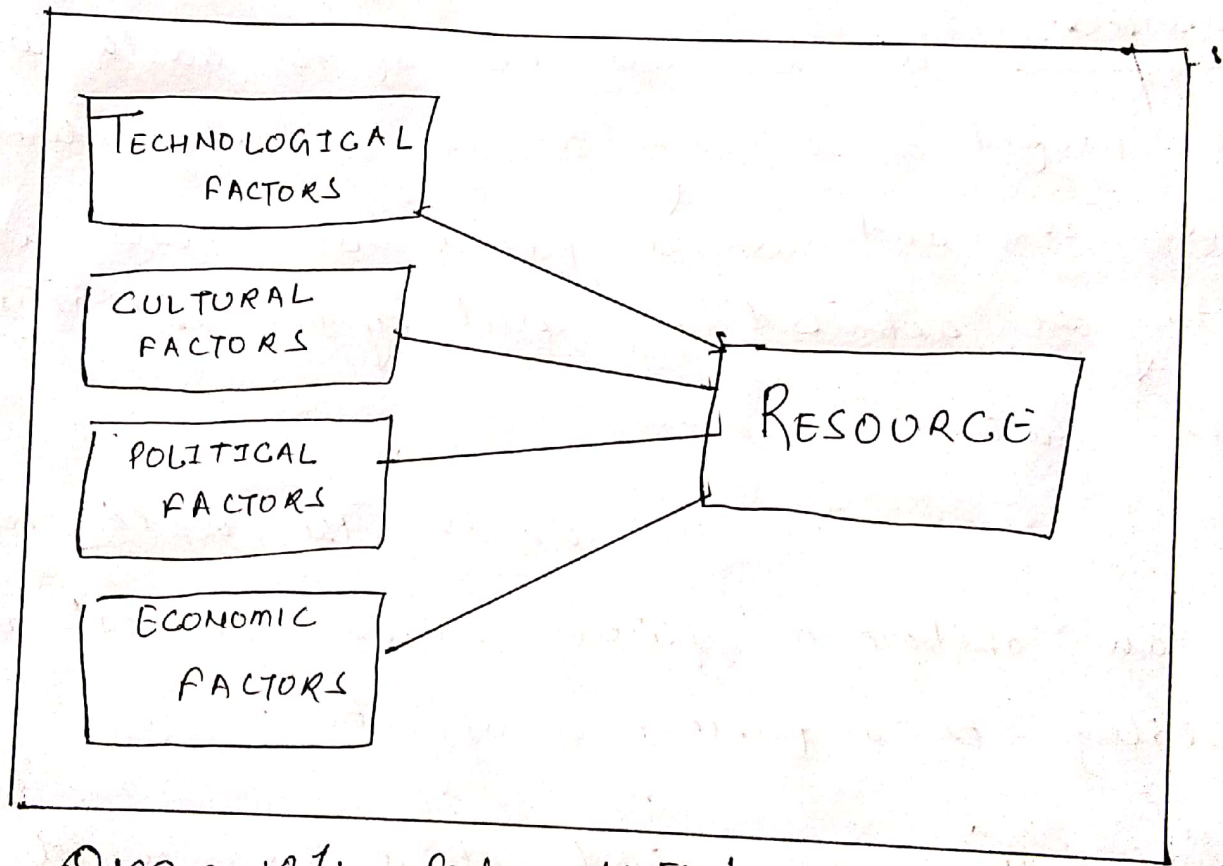 TECHNOLOGICAL
FACTORS
CULTURAL
FACTORS
POLITICAL
FACTORS
ECONOMIC
FACTORS
RESOURCE